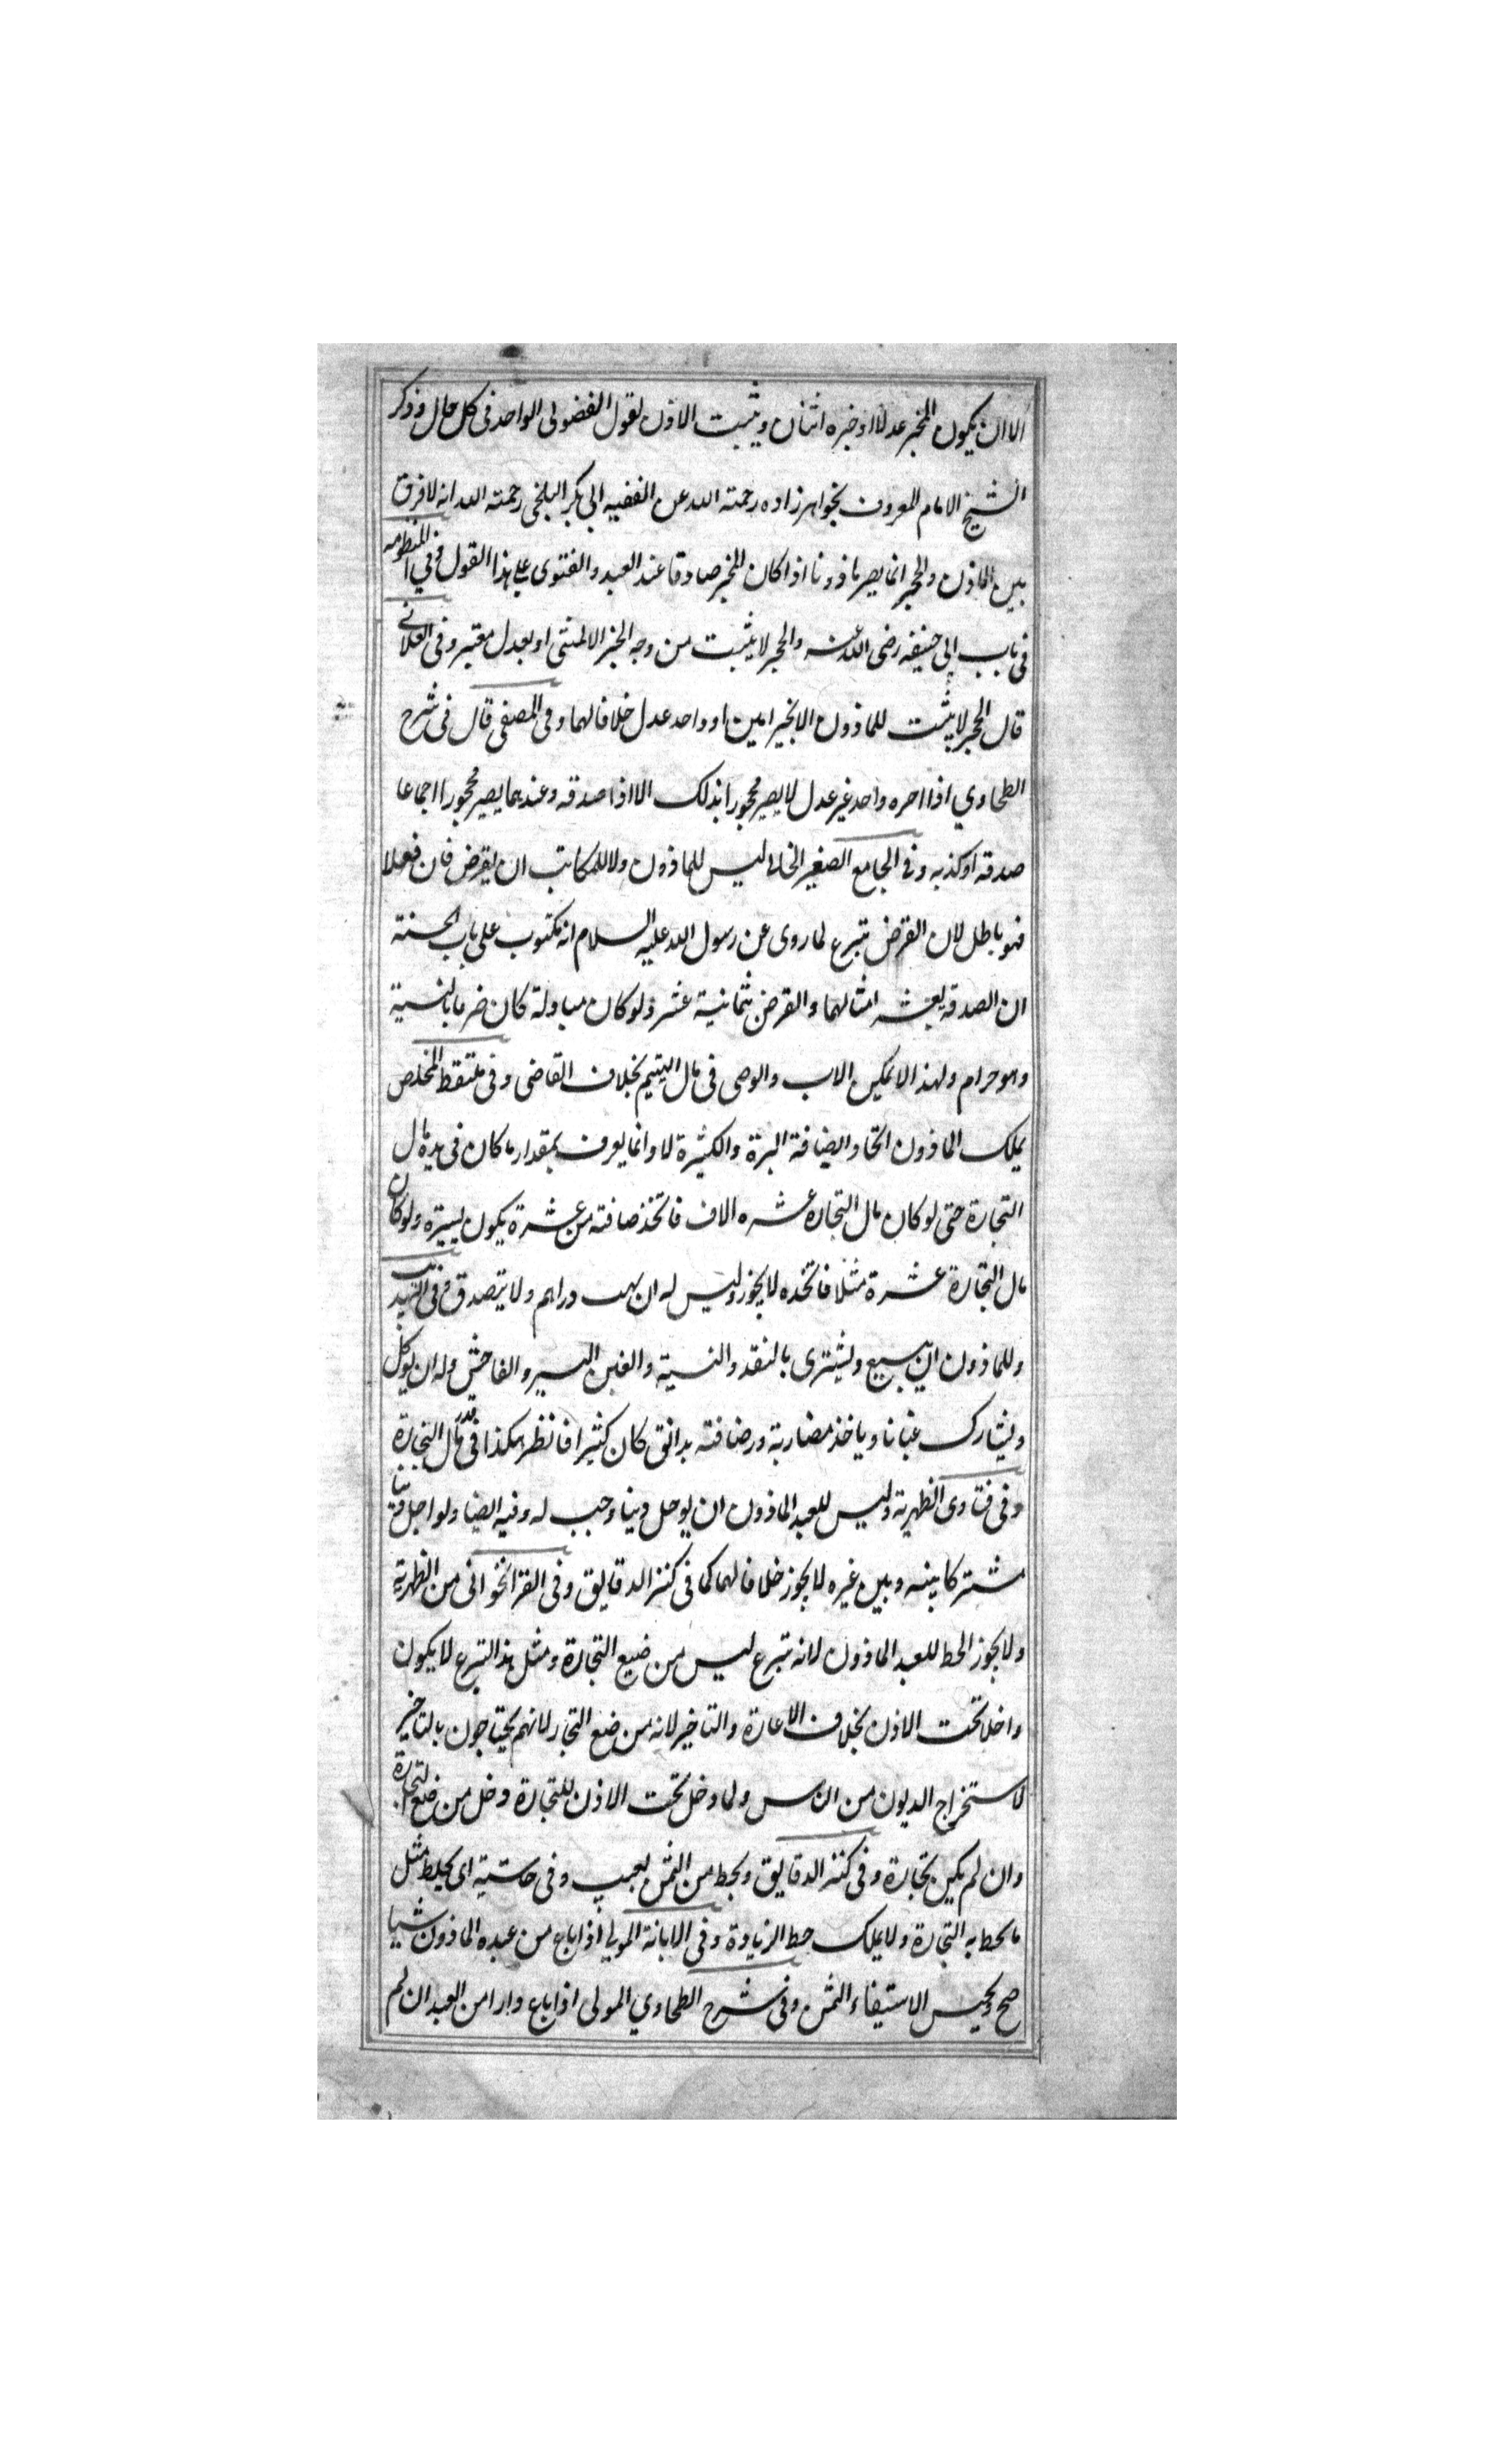 الا ان يكون المخبر عدلا او خبره اثنان ويثبت الاذن لقول الفضولى الواحد فى كل حال وذكر
الشيخ الامام المعروف بخواهرزاده رحمته الله عن الفقيه ابى بكر البلخى رحمته الله انه لا فرق
بين الماذن والحجر انما يصير ماذونا اذا كان المخبر صادقا عند العبد والفتوى على هذا القول وفي المنظومه
فى باب ابى حنيفه رضى الله عنه والحجر لا يثبت من وجه الخبر الا لمثنى او بعدل معتبر وفى
قال الحجر لا يثبت للماذون الا بخبر امين او واحد عدل خلافا لهما وفى المصفى قال فى شرح
الطحاوي اذا احره واحد غير عدل لا يصير محجورا بذلك الا اذا صدقه وعندهما يصير محجورا اجماعا
صدقه او كذبه وفى الجامع الصغير الخانى ليس للماذون ولا للمكاتب ان يقرض فان فعلا
فهو باطل لان القرض تبرع لما روى عن رسول الله عليه السلام انه مكتوب على باب الجنته
ان الصدقه بعشه امثالهما والقرض بثمانية عشر ولو كان مبادلة كان ضرما بالنسية
وهو حرام ولهذا لا تمكين الاب والوصى فى مال اليتيم بخلاف القاضى وفى ملتقط المخلص
يملك الماذون اتخاد الضيافة البرة والكثيرة لا وانما يعرف بمقدار ما كان فى يده مال
التجارة حتى لو كان مال التجاره عشره الاف فاتخذ ضافته من عشرة يكون يسيره ولو كان
مال التجارة عشرة مثلا فاتخذه لا يجوز وليس له ان يهب دراهم ولا يتصدق وفى التهذيب
وللماذون ان يبيع ويشترى بالنقد والنسية والغبن اليسير والفاحش وله ان يوكل
ويشارك عنانا وياخذ مضاربة ورضافته بدانق كان كثيرا فانظر هكذا فى قدر مال التجارة
وفى فتاوى الظهرية وليس للعبد الماذون ان يوجل دينا وجب له وفيه ايضا ولو اجل دينا
مشتركا بينه وبين غيره لا يجوز خلافا لهما كما فى كنز الدقايق وفى القراخوانى من الظهرية
ولا يجوز الحط للعبد الماذون لانه تبرع ليس من ضيع التجارة ومثل هذا التبرع لا يكون
داخلا تحت الاذن بخلاف الاعارة والتاخير لانه من ضع التجار لانهم يحتاجون بالتاخير
لاستخراج الديون من الناس ولما دخل تحت الاذن للتجارة دخل من ضع التجارة
وان لم يكن تجارة وفى كنز الدقايق ويحط من الثمن لعيب وفى حاشية اى يحط مثل
ما يحط به التجارة ولا يملك حط الزيادة وفى الابانة المولى اذا باع من عبده الماذون شيا
صح ويحبس الاستيفاء الثمن وفى شرح الطحاوي المولى اذا باع دارا من العبد ان لم